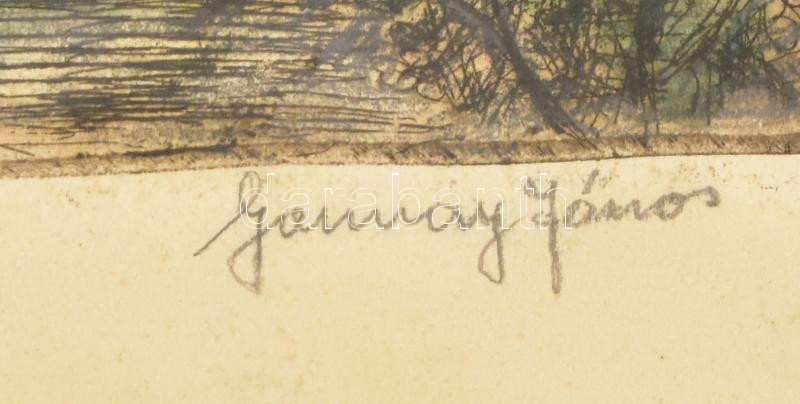 Garavay János
darabanth